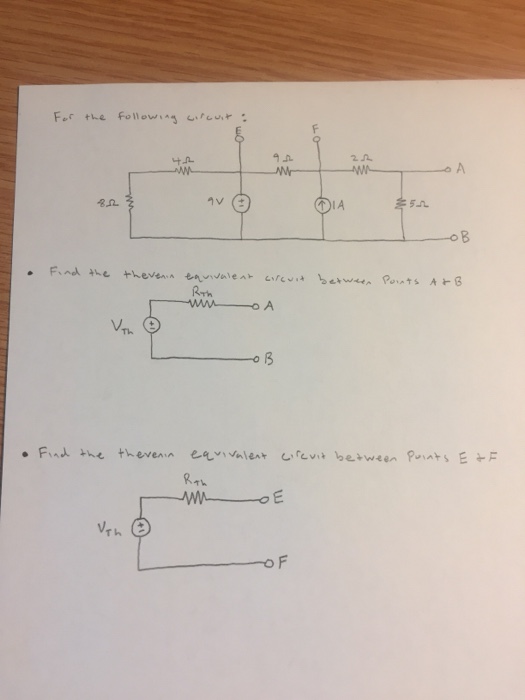 For the following circuit :
E F
4Ω 9Ω 2Ω A
8Ω 9V 1A 5Ω
B
• Find the thevenin equivalent circuit between Points A & B
RTh
A
VTh
B
• Find the thevenin equivalent circuit between Points E & F
RTh
E
VTh
F